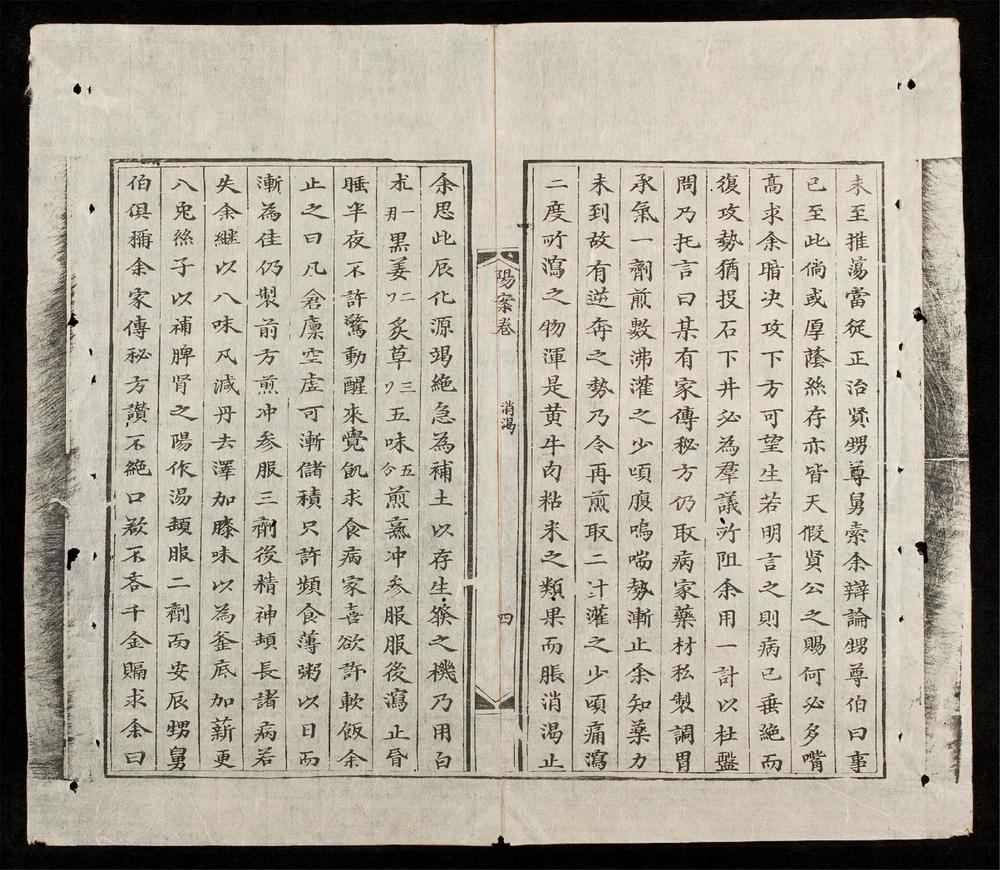 未至推蕩當從正治贤甥尊舅索余辯論甥尊伯曰事
已至此倘或厚蔭絲存亦皆天假賢公之賜何必多嘴
高求余暗决攻下方可望生若明言之則病已垂絶而
復攻勢猶投石下井必為羣議所阻余用一計以杜盤
問乃托言曰某有家傳秘方仍取病家藥材私製調胃
承氣一劑煎數沸灌之少頃腹嗚喘勢漸止余知藥力
未到故有逆奔之勢乃令再煎取二汁灌之少頃痛瀉
二度所瀉之物渾是黄牛肉粘米之類果而脹消渴止
陽案卷 消渴 四
余思此辰化源竭絶急為補土以存生發之機乃用白
朮一刄黒姜二𠃌炙草三𠃌五味五分煎熹冲參服服後瀉止昏
睡半夜不許驚動醒來覺飢求食病家喜欲許軟飯余
止之曰凡倉廩空虚可漸儲積只許頻食薄粥以日而
漸為佳仍製前方煎冲参服三劑後精神頓長諸病若
失余継以八味凡減丹去澤加膝味以為釜底加薪更
八兎絲子以補脾肾之陽作湯頻服二劑而安辰甥舅
伯俱稱余家傳秘方讃不絶口欲不吝千金賜求余曰